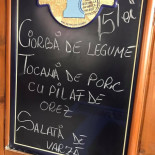 15 lei
CIORBĂ DE LEGUME
TOCANĂ DE PORC
CU PILAF DE
OREZ
SALATĂ DE
VARZĂ